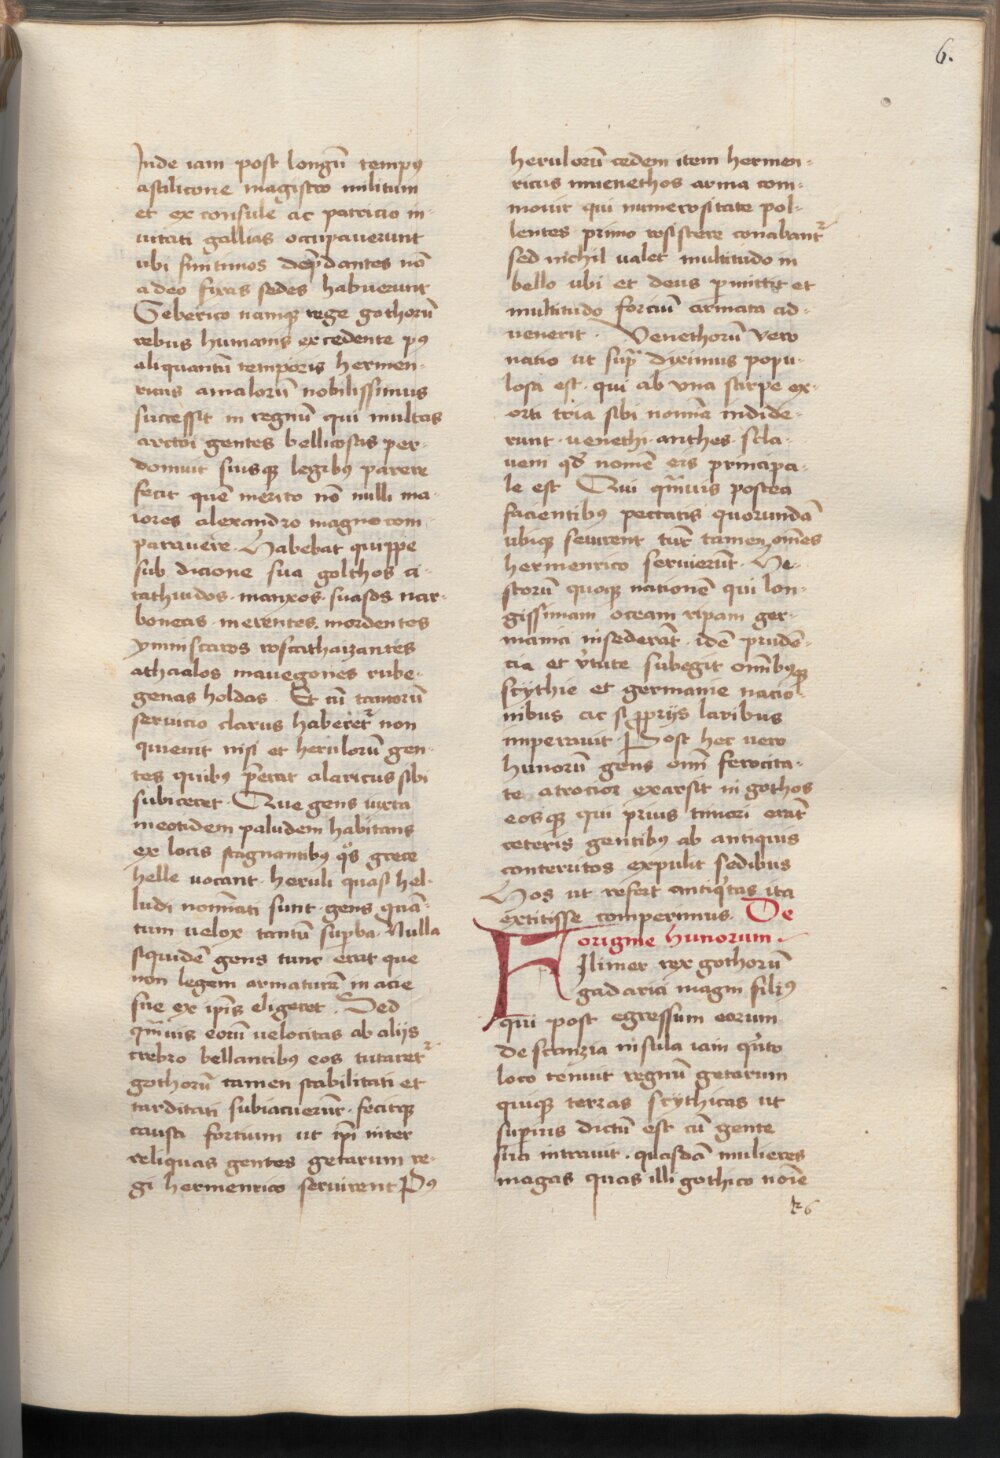 6.
Inde iam post longū tempꝰ
astilicone magistro militum
et ex consule ac patricio in-
uitati gallias occupauerunt
ubi finitimos dep̄dantes nō
adeo fixas sedes habuerunt
Geberico namqꝫ rege gothorū
rebus humanis excedente pꝰ
aliquantū temporis hermen-
ricus amalorū nobilissimus
successit in regnū qui multas
arctoi gentes bellicosas per-
domuit suisqꝫ legibꝰ parere
fecit quē merito nō nulli ma-
iores alexandro magno com-
parauere. Habebat quippe
sub dicione sua golthos ci-
tathiudos. manxos. suasos nar-
boncas. merentes. mordentes
ymniscaros roscathaizantes
athcialos mauegones rube-
genas holdas Et cū tantorū
seruicio clarus haberetᷣ non
quieuit nisi et herulorū gen-
tes quibꝰ p̄erat alaricus sibi
subiceret. Que gens iuxta
meotidem paludem habitans
ex locis stagnantibꝰ qͦs grece
helle uocant. heruli quasi hel-
ludi nomīati sunt. gens quā-
tum velox tantū supba. Nulla
siquidē gens tunc erat que
non legem armaturē in acie
sue ex ipīs eligeret. Sed
qmͣuis eorū velocitas ab alijs
crebro bellantibꝰ eos tutaretᷣ
gothorū tamen stabilitati et
tarditati subiacuerūt. fecitqꝫ
causa fortium ut ipī inter
reliquas gentes getarum re-
gi hermenrico seruirent Pꝰ
herulorū cedem item hermen-
ricus inuenethos arma com-
mouit qui numerositate pol-
lentes primo resistere conabantᷣ
sed nichil ualet multitudo in
bello ubi et deus pmittit et
multitudo forciū armata ad-
uenerit. Venethorū vero
natio ut supͣ diximus popu-
losa est. qui ab vna stirpe ex-
orti tria sibi nomīa indide-
runt. venethi. anthes. scla-
ueni qd̄ nomē eis principa-
le est Qui qmͣuis postea
facientibꝰ peccatis quorundā
ubiqꝫ seuirent tūc tamen om̄es
hermenrico seruierūt. He-
storū quoqꝫ nationē qui lon-
gissimam oceani ripam ger-
mania insederāt. idē prudē-
cia et v̓tute subegit om̄ibꝰqꝫ
scythie et germanie natio-
nibus ac si ꝓprijs laribus
imperauit. Post hec vero
hunorū gens om̄i ferocita-
te atrocior exarsit in gothos
eosqꝫ qui prius timori erāt
ceteris gentibꝰ ab antiquis
conterritos expulit sedibus
Hos ut refert antiqͥtas ita
extitisse comperimus. De
origine hunorum.
Filimer rex gothorū
gadarici magni filiꝰ
qui post egressum eorum
de scanzia insula iam qͥnto
loco tenuit regnū getarum
quiqꝫ terras scythicas ut
supius dictū est cū gente
sua intrauit. quasdā mulieres
magas quas illi gothico noīe
k 6